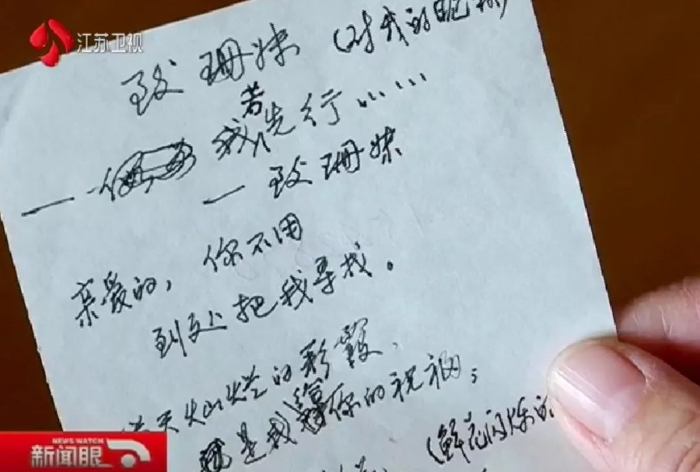 江苏卫视
致珊妹(对我的昵称)
我若先行……
——致珊妹
亲爱的,你不用
到处把我寻找。
满天灿烂的彩霞,
是我给你的祝福;
(鲜花闪烁的
NEWS WATCH
新闻眼